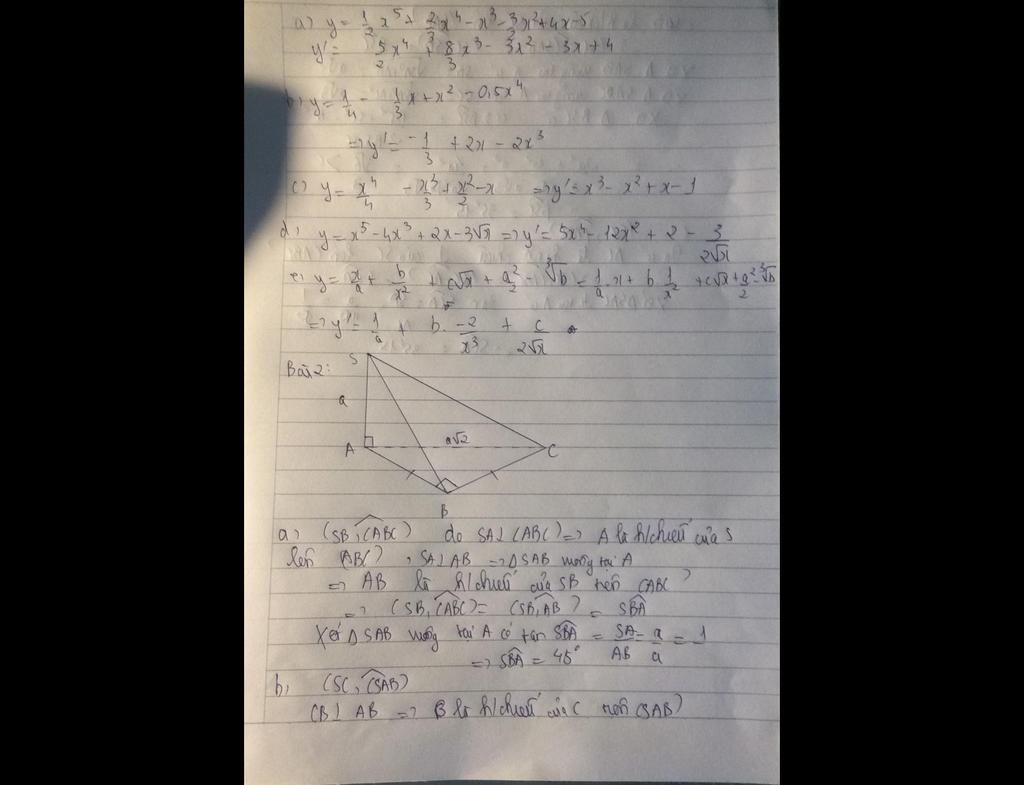 a) y = 1/2 x⁵ + 2/3 x⁴ - x³ - 3/2 x² + 4x - 5
y' = 5/2 x⁴ + 8/3 x³ - 3x² - 3x + 4
b, y = 1/4 - 1/3 x + x² - 0,5x⁴
=> y' = -1/3 + 2x - 2x³
c) y = x⁴/4 - x³/3 + x²/2 - x => y' = x³ - x² + x - 1
d, y = x⁵ - 4x³ + 2x - 3√x => y' = 5x⁴ - 12x² + 2 - 3/2√x
e, y = x/a + b/x² + c√x + a²/2 - ∛b = 1/a . x + b 1/x² + c√x + a²/2 - ∛b
=> y' = 1/a + b. -2/x³ + c/2√x
Bài 2:
S
a
A
a√2
C
B
a, (SB, (ABC) do SA⊥(ABC) => A là h/chiếu của S
lên (ABC) , SA⊥AB => ΔSAB vuông tại A
=> AB là h/chiếu của SB trên (ABC)
=> (SB, (ABC) = (SB, AB) = SBA
Xét ΔSAB vuông tại A có tan SBA = SA/AB = a/a = 1
=> SBA = 45°
b, (SC, (SAB)
CB⊥AB => B là h/chiếu của C trên (SAB)